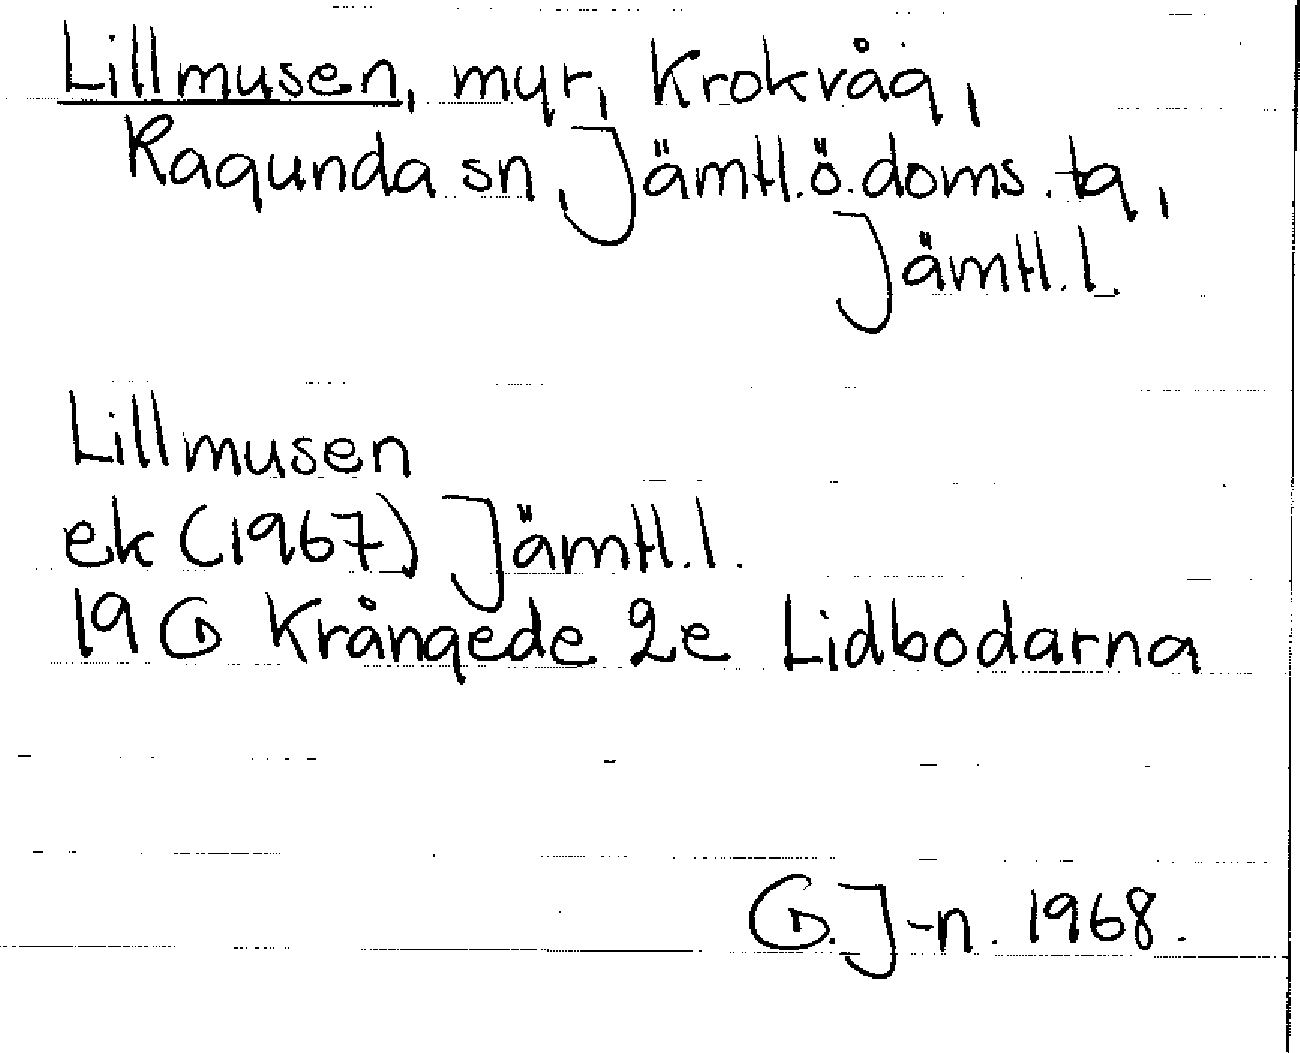 Lillmusen, myr, Krokvåg,
Ragunda sn, Jämtl.ö.doms.tg,
Jämtl.l.
Lillmusen
ek (1967) Jämtl.l.
19 G Krångede 2e Lidbodarna
G.J-n. 1968.